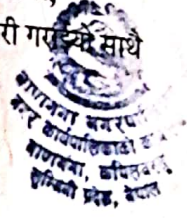 री गराइयो साथै
बाणगंगा नगरपा
नगर कार्यपालिकाको का
बाणगंगा, कपिलवस्तु
लुम्बिनी प्रदेश, नेपाल